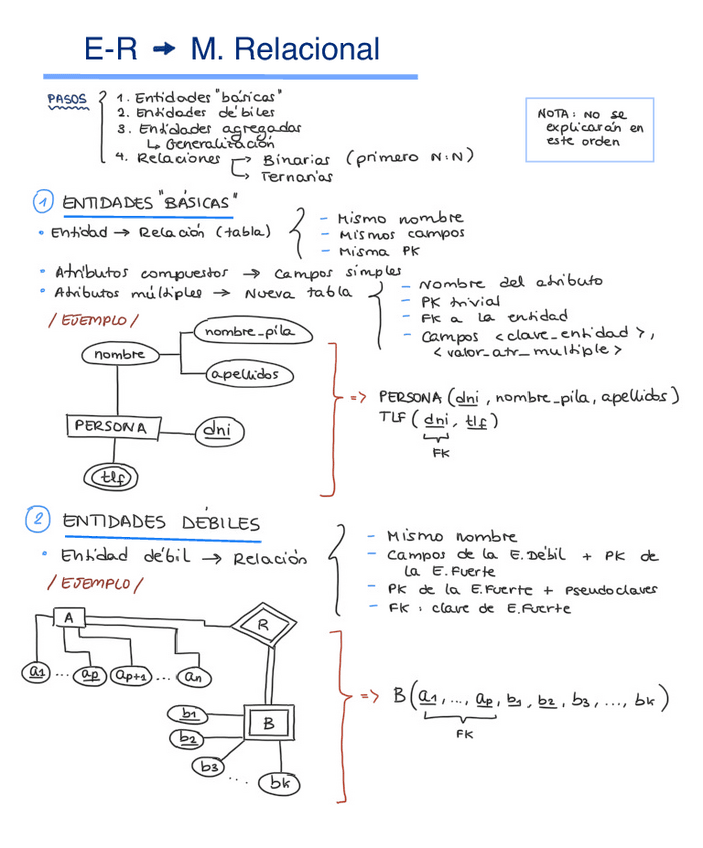 E-R → M. Relacional
PASOS
1. Entidades "básicas"
2. Entidades débiles
3. Entidades agregadas
↳ Generalización
4. Relaciones → Binarias (primero N:N)
↳ Ternarias
NOTA: NO se
explicarán en
este orden
1 ENTIDADES "BÁSICAS"
• Entidad → Relación (tabla)
- Mismo nombre
- Mismos campos
- Misma PK
• Atributos compuestos → Campos simples
• Atributos múltiples → Nueva tabla
- Nombre del atributo
- PK trivial
- FK a la entidad
- Campos <clave_entidad>,
<valor_atr_multiple>
/EJEMPLO/
nombre_pila
nombre
apellidos
PERSONA
dni
tlf
=> PERSONA (dni, nombre_pila, apellidos)
TLF (dni, tlf)
FK
2 ENTIDADES DÉBILES
• Entidad débil → Relación
- Mismo nombre
- Campos de la E.Débil + PK de
la E.Fuerte
- PK de la E.Fuerte + Pseudoclaves
- FK: clave de E.Fuerte
/EJEMPLO/
A
R
a1 ... ap ap+1 ... an
b1
B
b2
b3
...
bk
=> B(a1, ..., ap, b1, b2, b3, ..., bk)
FK